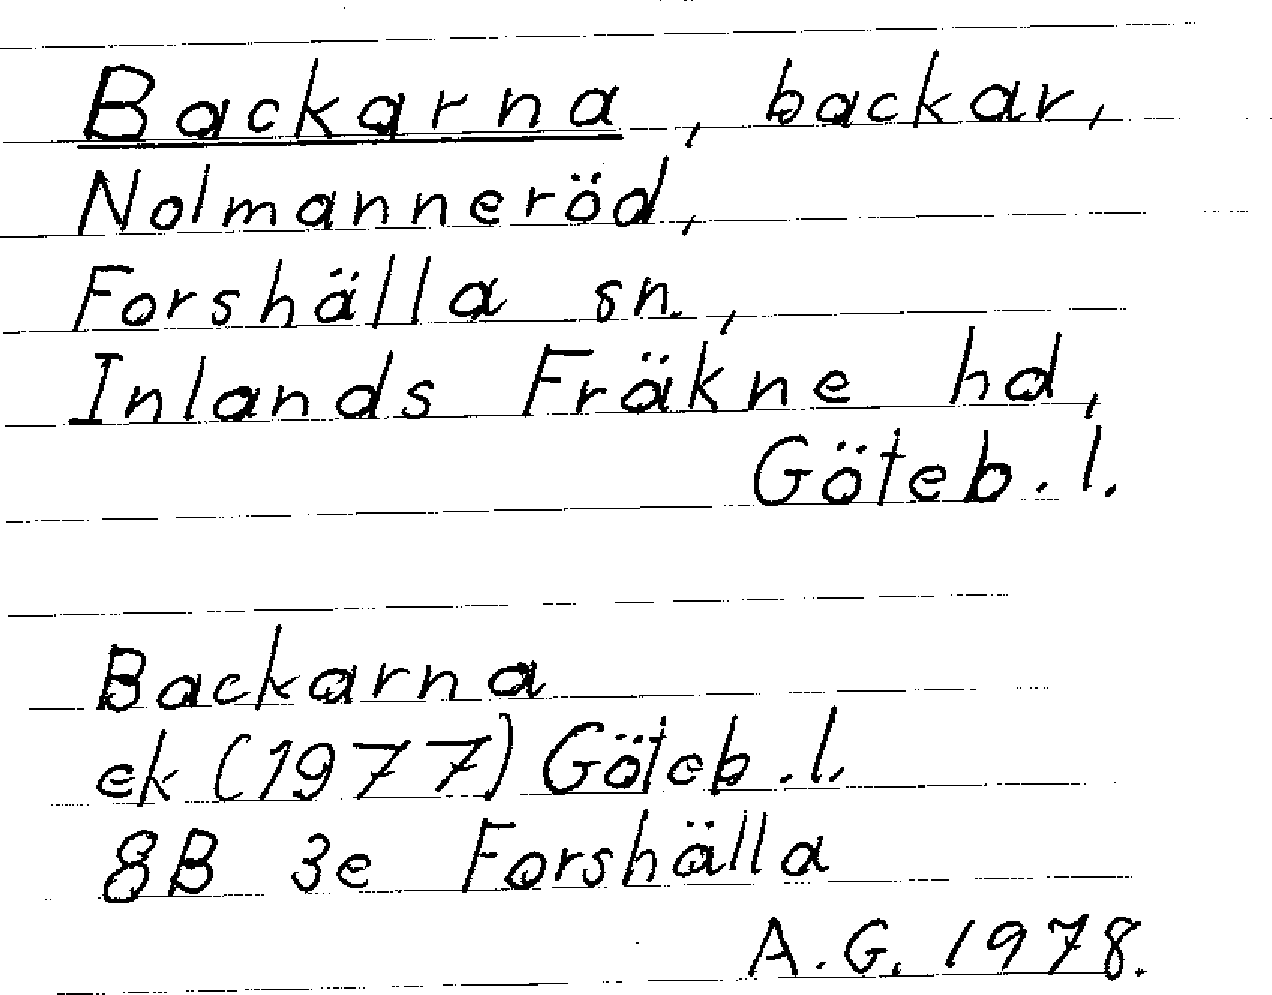 Backarna, backar,
Nolmanneröd,
Forshälla sn.,
Inlands Fräkne hd,
Göteb. l.
Backarna
ek (1977) Göteb. l.
8B 3e Forshälla
A. G. 1978.